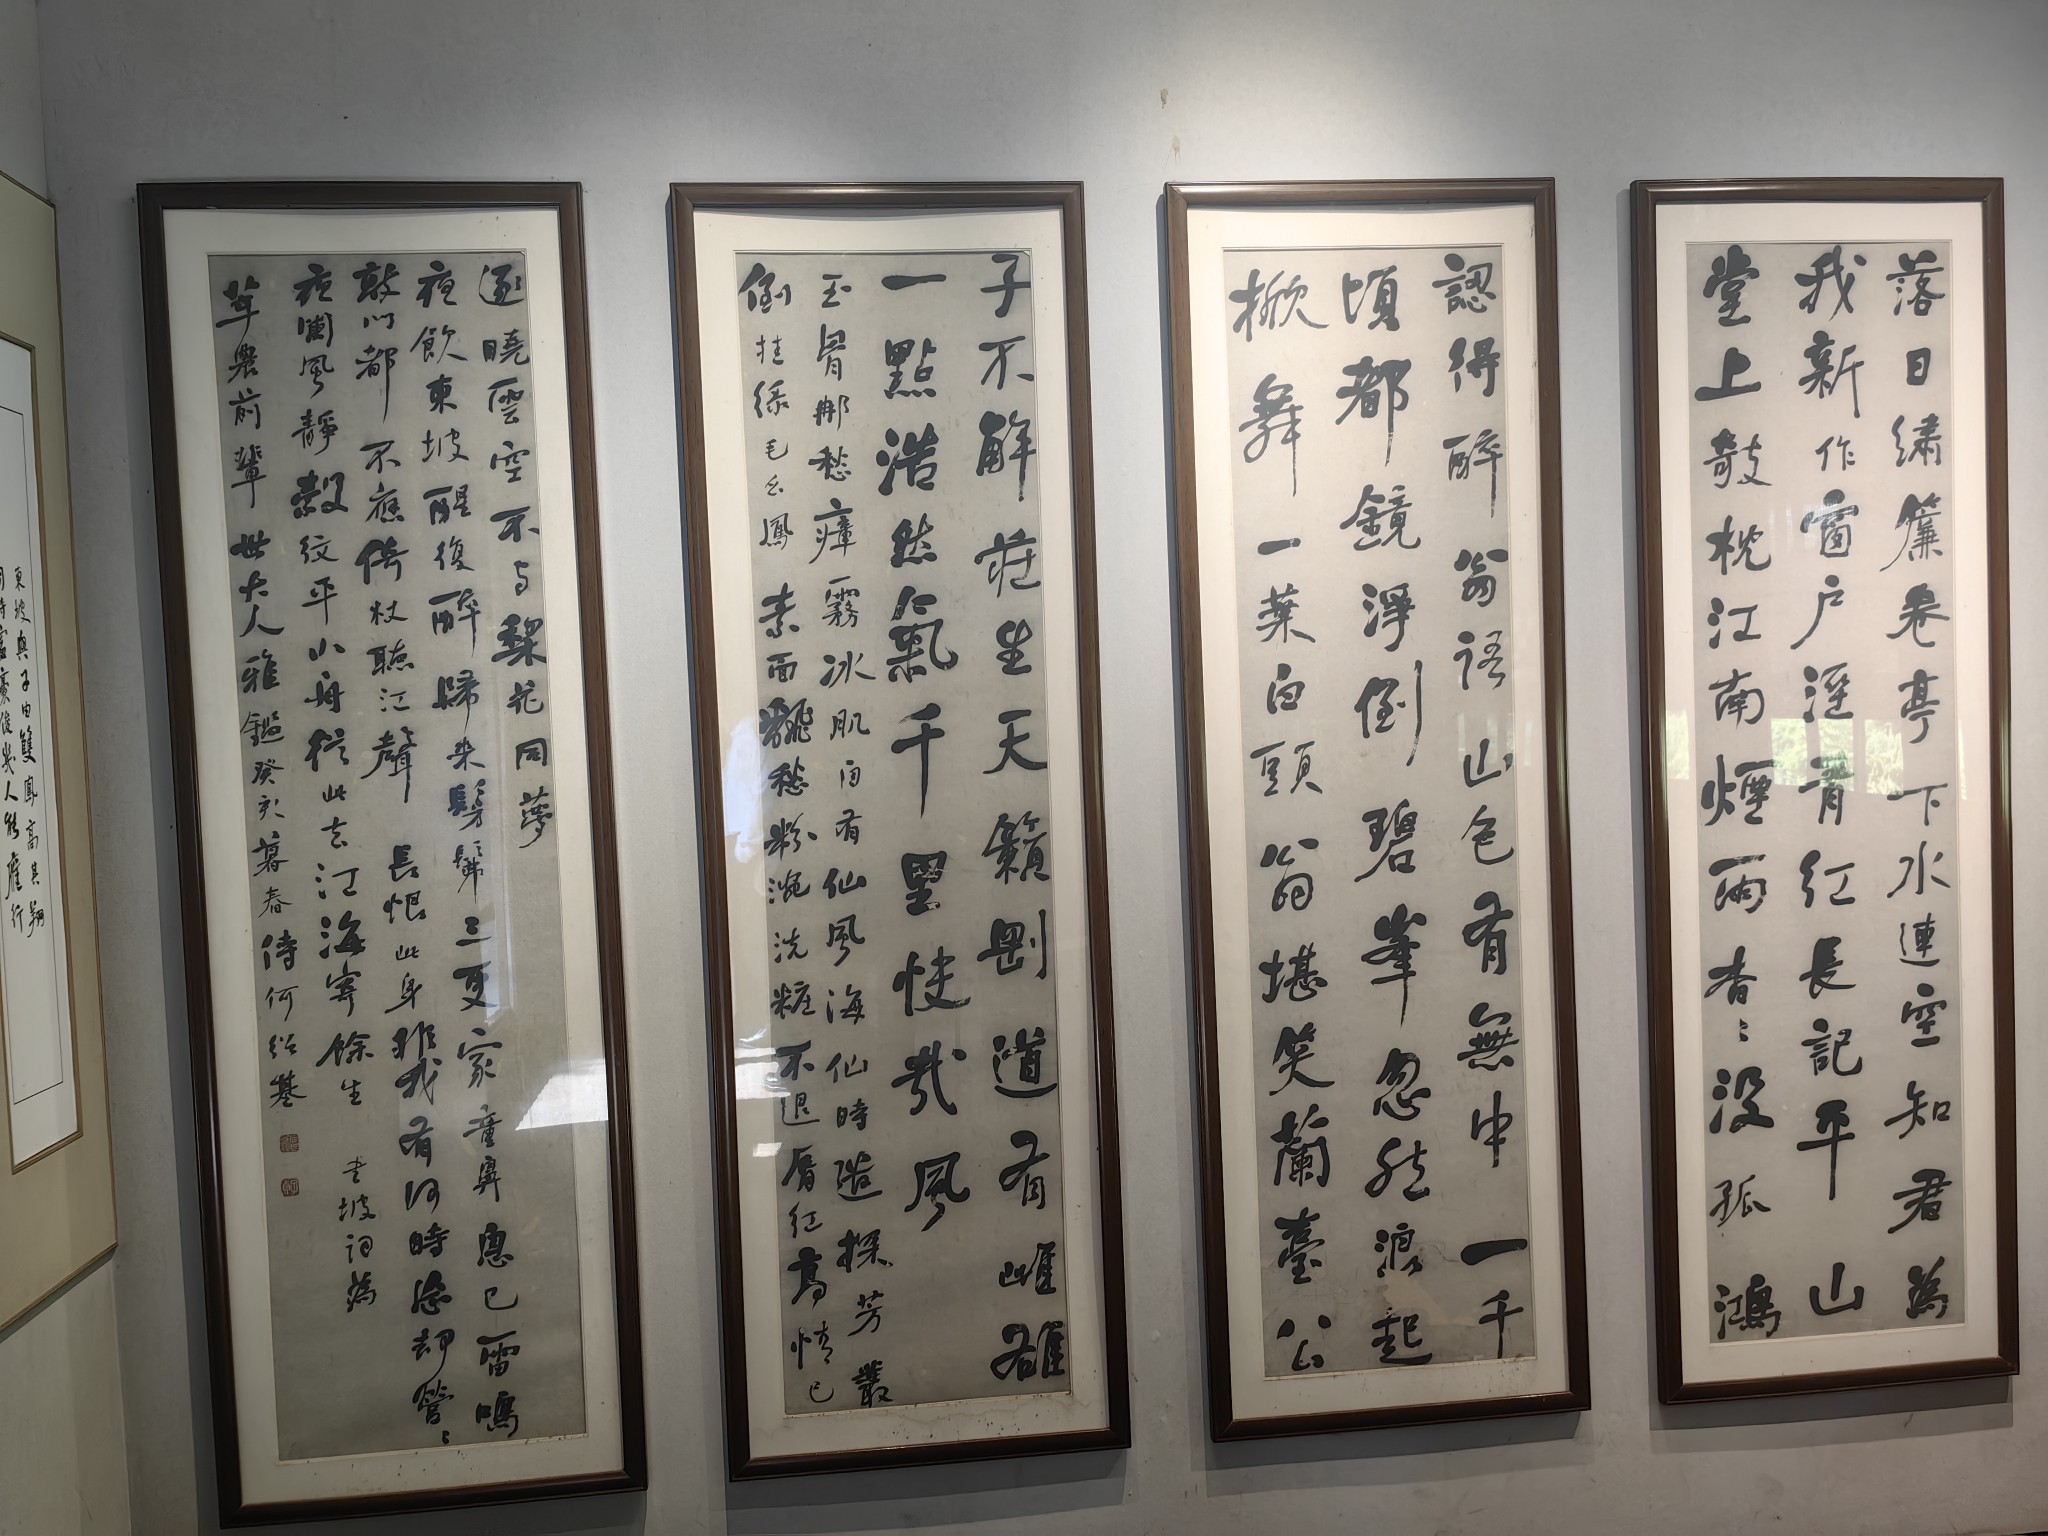 落日繡簾卷亭下水連空知君為
我新作窗戶溼青紅長記平山
堂上攲枕江南煙雨杳〻沒孤鴻
認得醉翁語山色有無中一千
頃都鏡淨倒碧峯忽然浪起
掀舞一葉白頭翁堪笑蘭臺公
子不解莊生天籟剛道有雌雄
一點浩然氣千里快哉風
玉骨那愁瘴霧冰肌自有仙風海仙時遣探芳叢
倒挂綠毛幺鳳 素面飜愁粉涴洗糚不退脣紅高情已
逐曉雲空不与棃花同夢
夜飲東坡醒復醉歸來髣髴三更家童鼻息已雷鳴
敲門都不應倚杖聽江聲 長恨此身非我有何時忘却營〻
夜闌風靜縠紋平小舟從此去江海寄餘生 書坡詞為
莘農前輩世大人雅鑑癸亥暮春侍何紹基
東坡與子由雙鳳高其翔
俊幾人能雁行